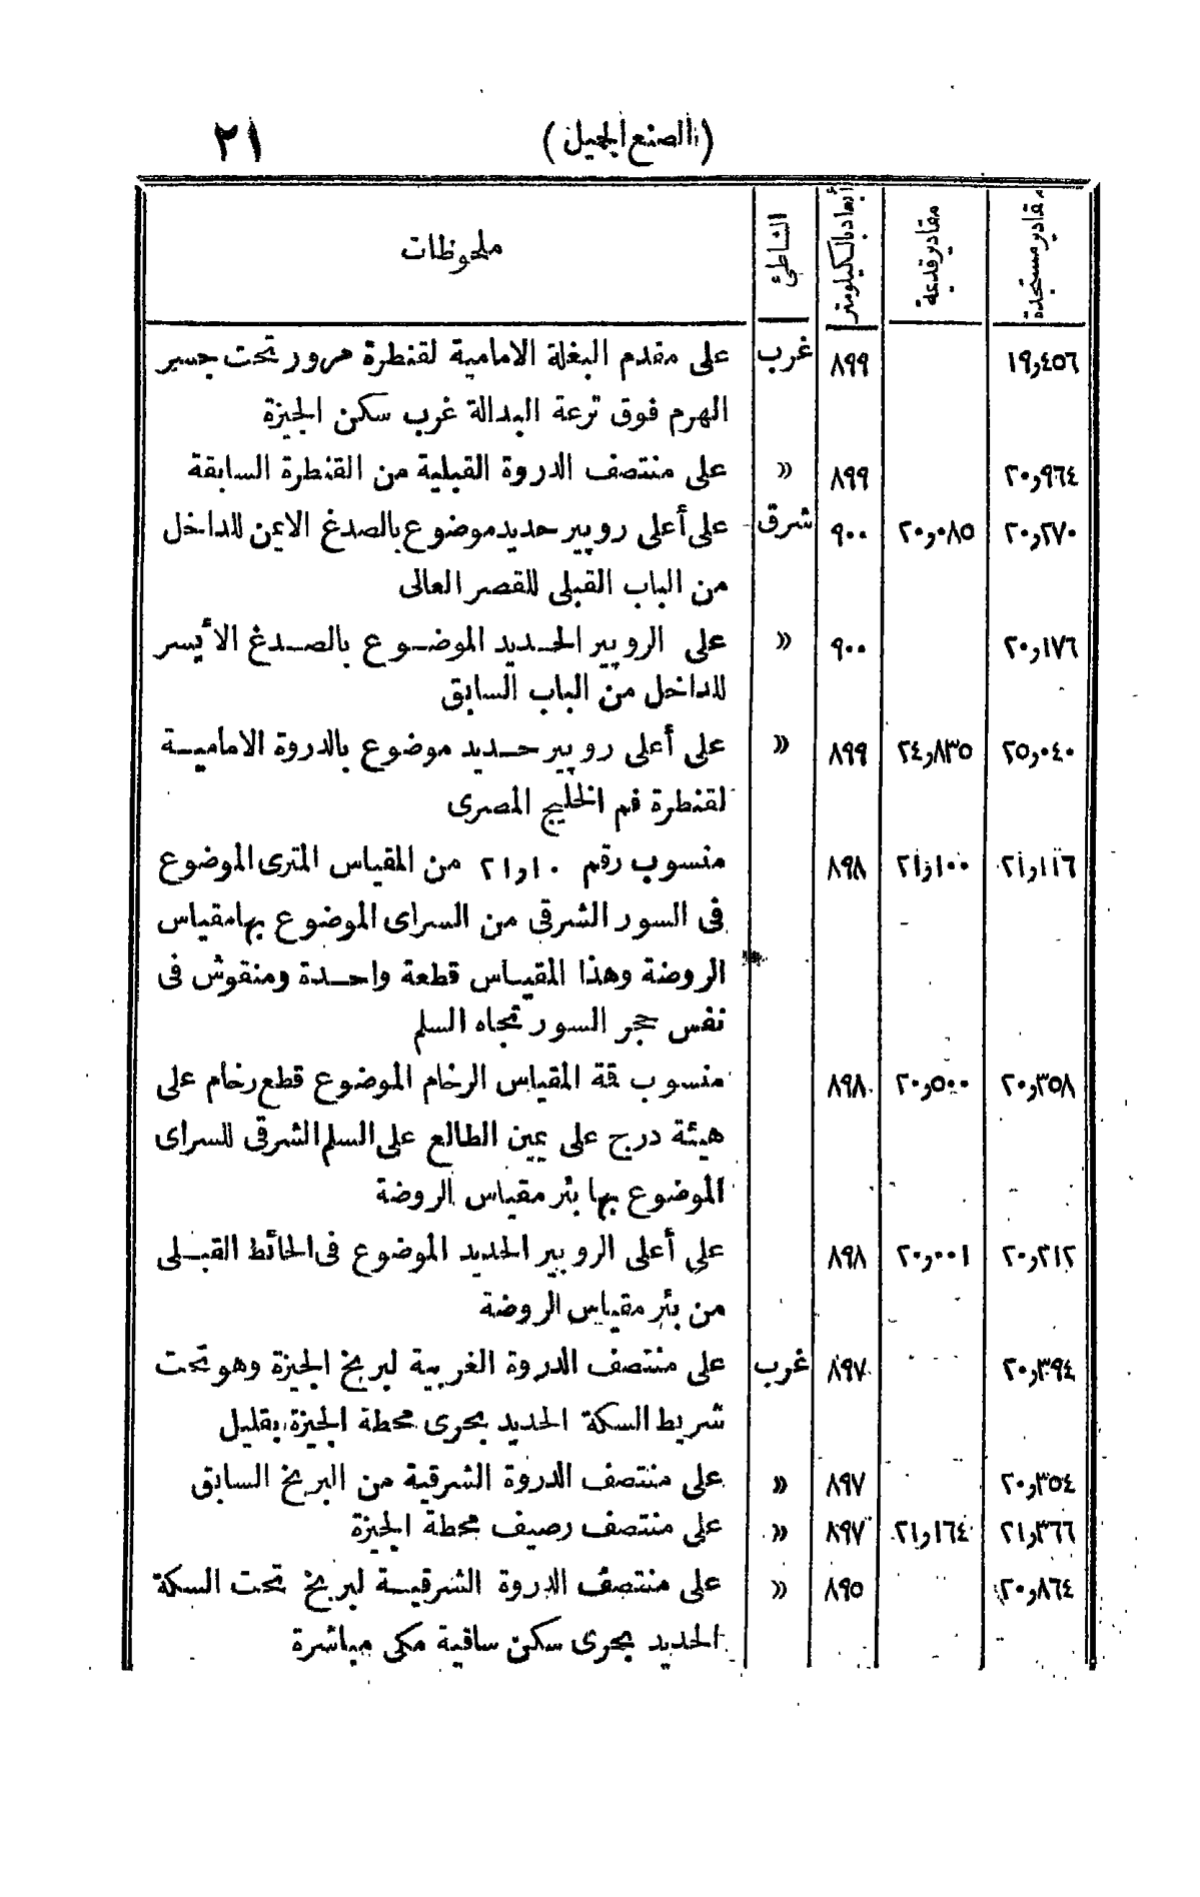 (الصنع الجميل) ٢١
مقادير مستجدة مقادير قديمة أبعاد بالكيلومتر الشاطئ ملحوظات
١٩٫٤٥٦ ٨٩٩ غرب على مقدم البغلة الامامية لقنطرة مرور تحت جسر
الهرم فوق ترعة البدالة غرب سكن الجيزة
٢٠٫٩٦٤ ٨٩٩ » على منتصف الدروة القبلية من القنطرة السابقة
٢٠٫٢٧٠ ٢٠٫٠٨٥ ٩٠٠ شرق على أعلى روبير حديد موضوع بالصدغ الايمن للداخل
من الباب القبلى للقصر العالى
٢٠٫١٧٦ ٩٠٠ » على الروبير الحـديد الموضـوع بالصـدغ الأيسر
للداخل من الباب السابق
٢٥٫٠٤٠ ٢٤٫٨٣٥ ٨٩٩ » على أعلى روبير حـديد موضوع بالدروة الاماميـة
لقنطرة فم الخليج المصرى
٢١٫١١٦ ٢١٫١٠٠ ٨٩٨ منسوب رقم ٢١٫١٠ من المقياس المترى الموضوع
فى السور الشرقى من السراى الموضوع بها مقياس
الروضة وهذا المقياس قطعة واحـدة ومنقوش فى
نفس حجر السور تجاه السلم
٢٠٫٣٥٨ ٢٠٫٥٠٠ ٨٩٨ منسوب قمة المقياس الرخام الموضوع قطع رخام على
هيئة درج على يمين الطالع على السلم الشرقى للسراى
الموضوع بها بئر مقياس الروضة
٢٠٫٢١٢ ٢٠٫٠٠١ ٨٩٨ على أعلى الروبير الحديد الموضوع فى الحائط القبـلى
من بئر مقياس الروضة
٢٠٫٣٩٤ ٨٩٧ غرب على منتصف الدروة الغربية لبربخ الجيزة وهو تحت
شريط السكة الحديد بحرى محطة الجيزة بقليل
٢٠٫٣٥٤ ٨٩٧ » على منتصف الدروة الشرقية من البربخ السابق
٢١٫٣٦٦ ٢١٫١٦٤ ٨٩٧ » على منتصف رصيف محطة الجيزة
٢٠٫٨٦٤ ٨٩٥ » على منتصف الدروة الشرقيـة لبربخ تحت السكة
الحديد بحرى سكن ساقية مكى مباشرة